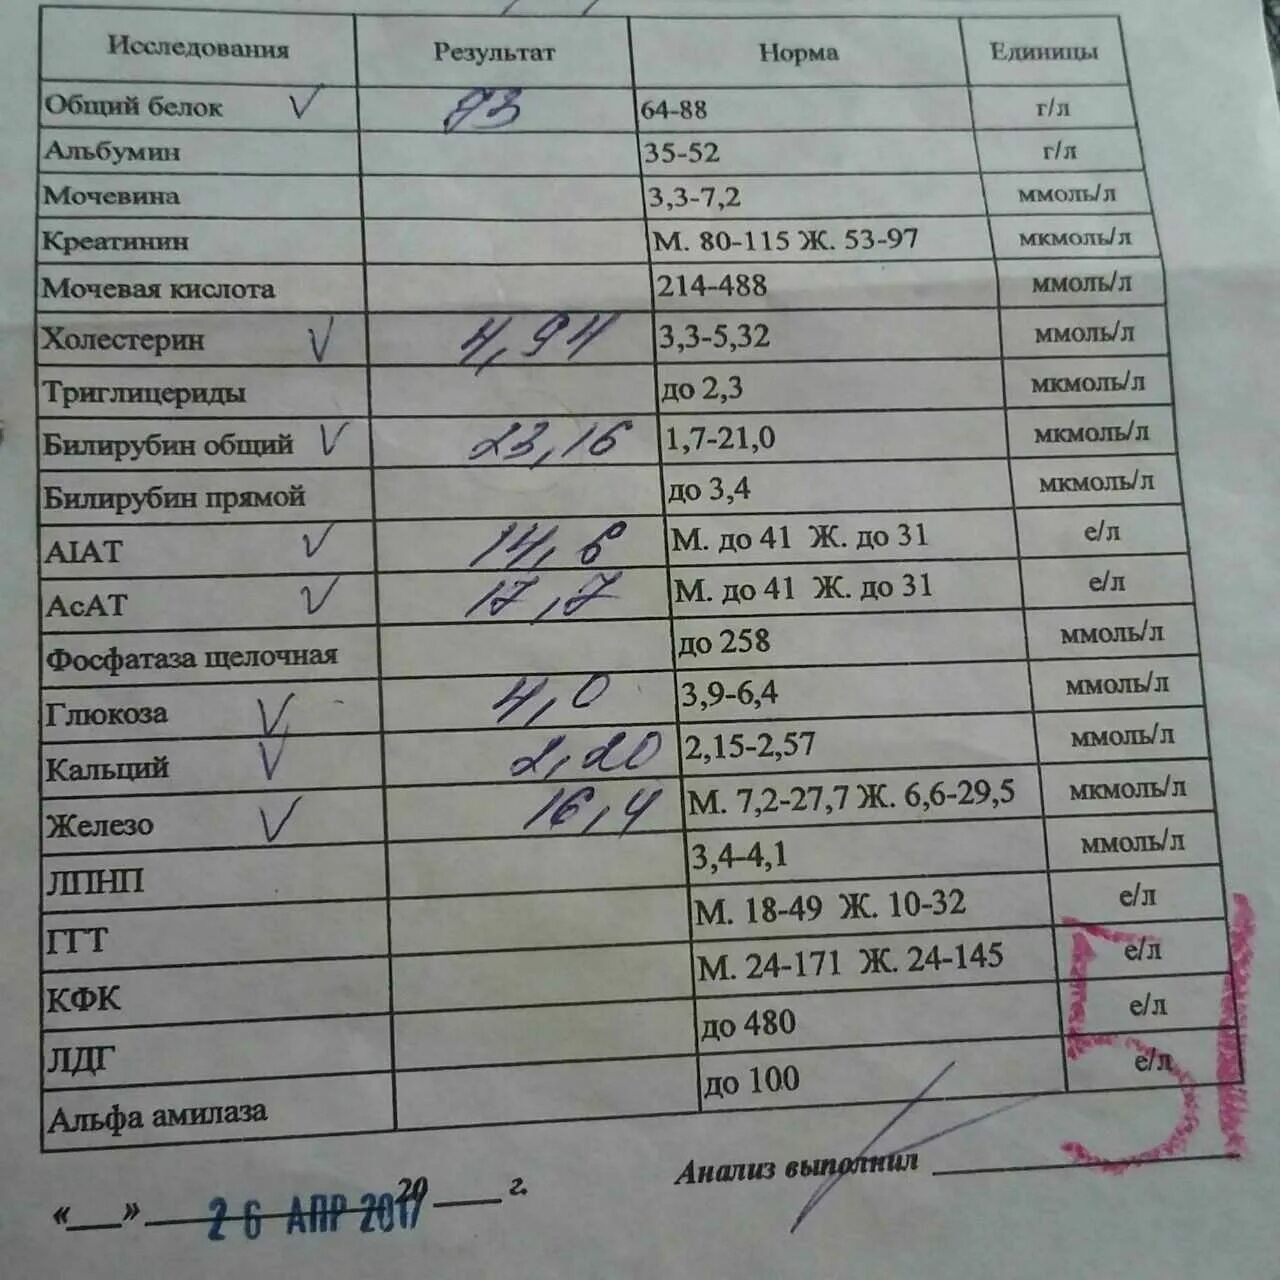 Исследования Результат Норма Единицы
Общий белок V 73 64-88 г/л
Альбумин 35-52 г/л
Мочевина 3,3-7,2 ммоль/л
Креатинин М. 80-115 Ж. 53-97 мкмоль/л
Мочевая кислота 214-488 ммоль/л
Холестерин V 4,94 3,3-5,32 ммоль/л
Триглицериды до 2,3 мкмоль/л
Билирубин общий V 23,16 1,7-21,0 мкмоль/л
Билирубин прямой до 3,4 мкмоль/л
АlАТ V 14,6 М. до 41 Ж. до 31 е/л
АсАТ V 17,7 М. до 41 Ж. до 31 е/л
Фосфатаза щелочная до 258 ммоль/л
Глюкоза V 4,0 3,9-6,4 ммоль/л
Кальций V 2,20 2,15-2,57 ммоль/л
Железо V 16,4 М. 7,2-27,7 Ж. 6,6-29,5 мкмоль/л
ЛПНП 3,4-4,1 ммоль/л
ГГТ М. 18-49 Ж. 10-32 е/л
КФК М. 24-171 Ж. 24-145 е/л
ЛДГ до 480 е/л
Альфа амилаза до 100 е/л
51
Анализ выполнил
«___»
20 ____ г.
26 АПР 2017